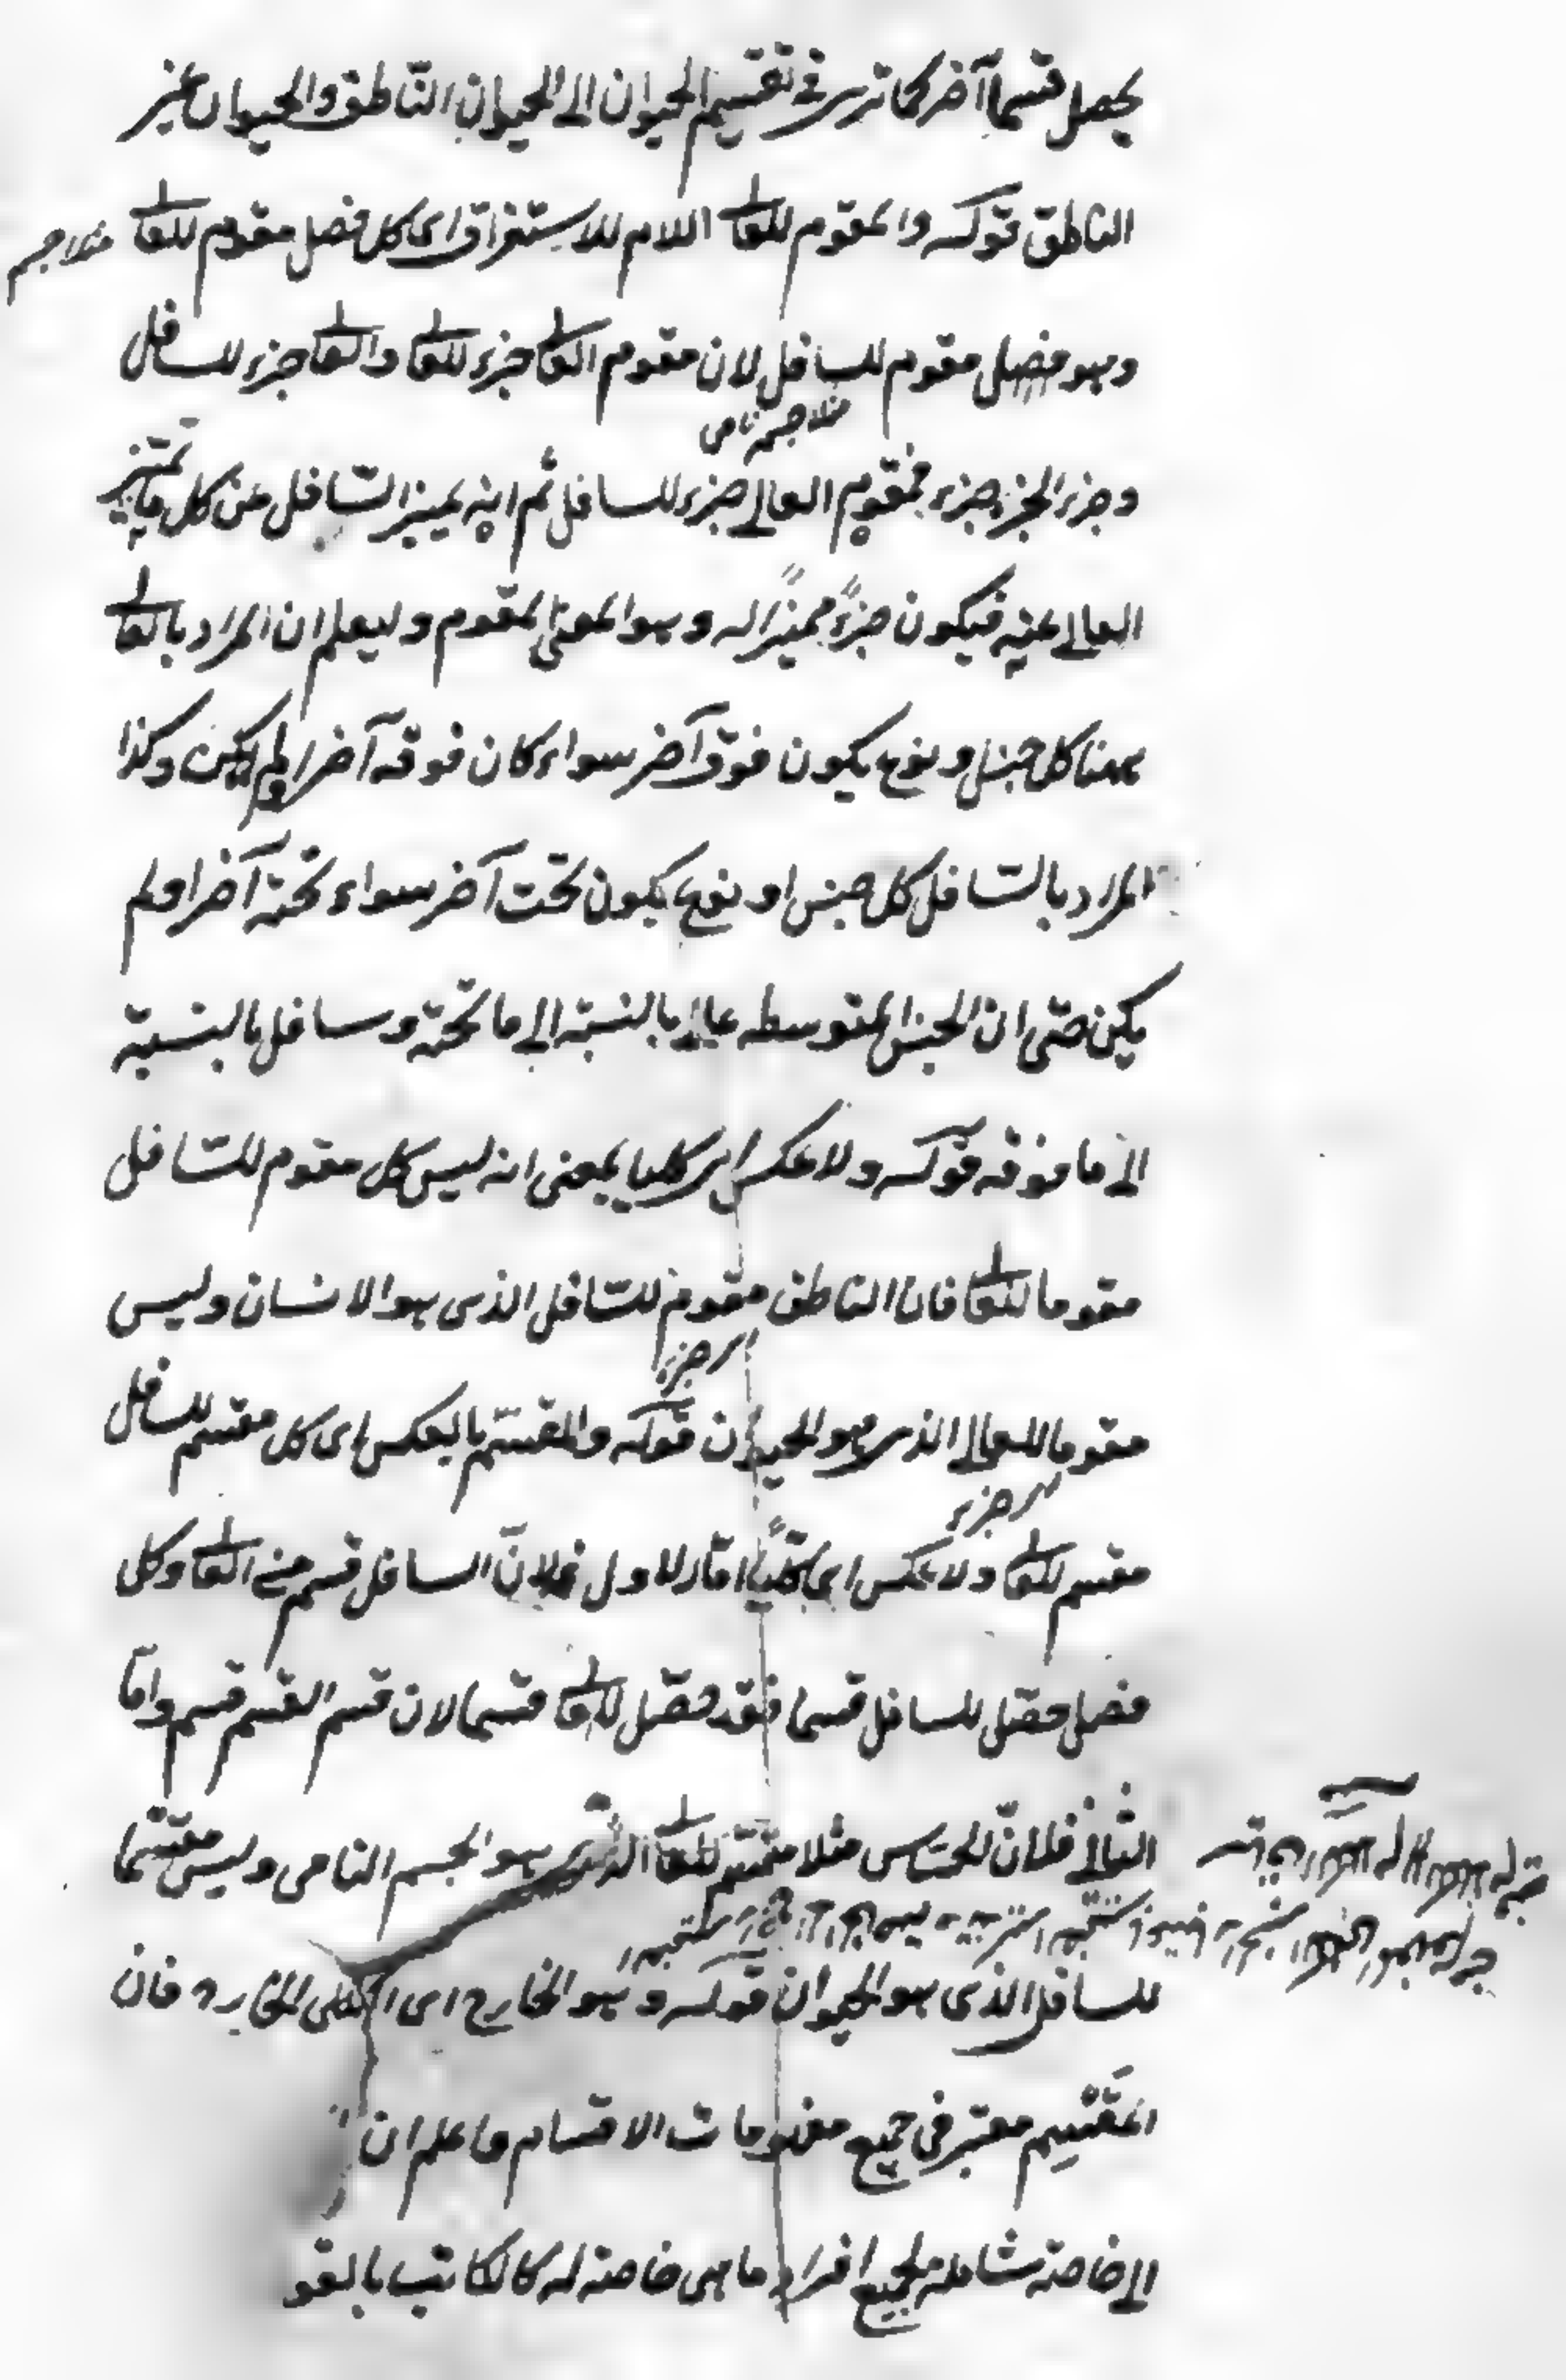 يحصل قسما آخر كما ترى في تقسيم الحيوان الى الحيوان الناطق والحيوان غير
الناطق قوله والمقوم للعالى اللام للاستغراق اى كل فصل مقوم للعالى مثلا جسم
وهو فصل مقوم للسافل لان مقوم العالى جزء للعالى والعالى جزء للسافل
مثلا جسم نامى
وجزء الجزء جزء فمقوم العالى جزء للسافل ثم انه يميز السافل عن كل ما يميز
العالى عنه فيكون جزءً مميزًا له وهو المعنى المقوم وليعلم ان المراد بالعالى
ههنا كل جنس او نوع يكون فوق آخر سواء كان فوقه آخر او لم يكن وكذا
المراد بالسافل كل جنس او نوع يكون تحت آخر سواء تحته آخر او لم
يكن حتى ان الجنس المتوسطه عالى بالنسبة الى ما تحته وسافل بالنسبة
الى ما فوقه قوله ولا عكس اى كليا بمعنى انه ليس كل مقوم للسافل
مقوما للعالى فان الناطق مقوم للسافل الذى هو الانسان وليس
اى جزء
مقوما للعالى الذى هو الحيوان قوله والمقسم بالعكس اى كل مقسم للسافل
اى جزء
مقسم للعالى ولا عكس اى كليًا اما الاول فلانّ السافل قسم من العالى وكل
فصل حصّل للسافل قسما فقد حصّل للعالى قسما لان قسم القسم قسم وامّا
الثانى فلانّ الحساس مثلا مقسّم للعالى الذى هو الجسم النامى وليس مقسّما
للسافل الذى هو الحيوان قوله وهو الخارج اى الكلى الخارج فان
المقسم معتبر فى جميع مفهومات الاقسام واعلم ان
الى خاصة شاملة لجميع افراد ما هى خاصة له كالكاتب بالقو